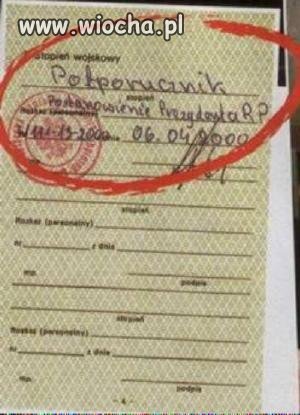 www.wiocha.pl
Stopień wojskowy
Podporucznik
stopień
Postanowienie Prezydenta RP
Rozkaz (personalny)
z dnia 06.04.2000
stopień
Rozkaz (personalny)
nr z dnia
mp.
podpis
stopień
Rozkaz (personalny)
nr. z dnia
mp.
podpis
- 4 -